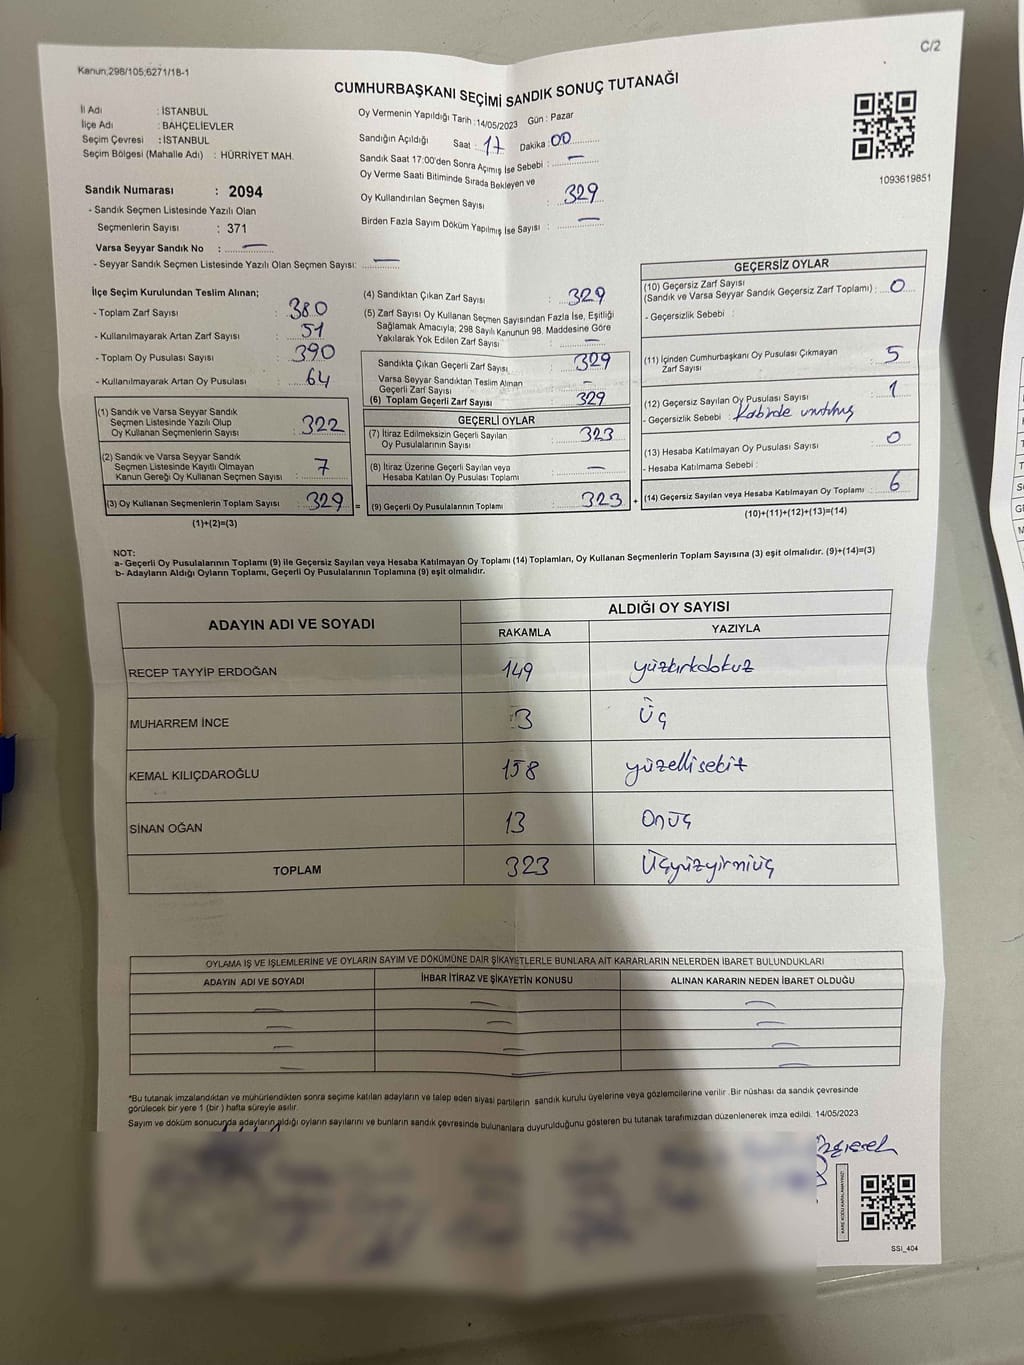 C/2
Kanun,298/105;6271/18-1
CUMHURBAŞKANI SEÇİMİ SANDIK SONUÇ TUTANAĞI
İl Adı : İSTANBUL
İlçe Adı : BAHÇELİEVLER
Seçim Çevresi : İSTANBUL
Seçim Bölgesi (Mahalle Adı) : HÜRRİYET MAH.
Oy Vermenin Yapıldığı Tarih :14/05/2023 Gün : Pazar
Sandığın Açıldığı Saat : 17 Dakika : 00
Sandık Saat 17:00'den Sonra Açımış İse Sebebi : —
Oy Verme Saati Bitiminde Sırada Bekleyen ve
Oy Kullandırılan Seçmen Sayısı : 329
Birden Fazla Sayım Döküm Yapılmış İse Sayısı : —
1093619851
Sandık Numarası : 2094
- Sandık Seçmen Listesinde Yazılı Olan
Seçmenlerin Sayısı : 371
Varsa Seyyar Sandık No : —
- Seyyar Sandık Seçmen Listesinde Yazılı Olan Seçmen Sayısı: —
İlçe Seçim Kurulundan Teslim Alınan;
- Toplam Zarf Sayısı : 380
- Kullanılmayarak Artan Zarf Sayısı : 51
- Toplam Oy Pusulası Sayısı : 390
- Kullanılmayarak Artan Oy Pusulası : 64
(1) Sandık ve Varsa Seyyar Sandık
Seçmen Listesinde Yazılı Olup
Oy Kullanan Seçmenlerin Sayısı : 322
(2) Sandık ve Varsa Seyyar Sandık
Seçmen Listesinde Kayıtlı Olmayan
Kanun Gereği Oy Kullanan Seçmen Sayısı : 7
(3) Oy Kullanan Seçmenlerin Toplam Sayısı : 329 =
(1)+(2)=(3)
(4) Sandıktan Çıkan Zarf Sayısı : 329
(5) Zarf Sayısı Oy Kullanan Seçmen Sayısından Fazla İse, Eşitliği
Sağlamak Amacıyla; 298 Sayılı Kanunun 98. Maddesine Göre
Yakılarak Yok Edilen Zarf Sayısı : —
Sandıkta Çıkan Geçerli Zarf Sayısı 329
Varsa Seyyar Sandıktan Teslim Alınan
Geçerli Zarf Sayısı —
(6) Toplam Geçerli Zarf Sayısı 329
GEÇERLİ OYLAR
(7) İtiraz Edilmeksizin Geçerli Sayılan
Oy Pusulalarının Sayısı : 323
(8) İtiraz Üzerine Geçerli Sayılan veya
Hesaba Katılan Oy Pusulası Toplamı : —
(9) Geçerli Oy Pusulalarının Toplamı : 323 +
GEÇERSİZ OYLAR
(10) Geçersiz Zarf Sayısı
(Sandık ve Varsa Seyyar Sandık Geçersiz Zarf Toplamı) : 0
- Geçersizlik Sebebi :
(11) İçinden Cumhurbaşkanı Oy Pusulası Çıkmayan
Zarf Sayısı : 5
(12) Geçersiz Sayılan Oy Pusulası Sayısı : 1
- Geçersizlik Sebebi : Kabinde unutmuş
(13) Hesaba Katılmayan Oy Pusulası Sayısı : 0
- Hesaba Katılmama Sebebi :
(14) Geçersiz Sayılan veya Hesaba Katılmayan Oy Toplamı : 6
(10)+(11)+(12)+(13)=(14)
NOT:
a- Geçerli Oy Pusulalarının Toplamı (9) ile Geçersiz Sayılan veya Hesaba Katılmayan Oy Toplamı (14) Toplamları, Oy Kullanan Seçmenlerin Toplam Sayısına (3) eşit olmalıdır. (9)+(14)=(3)
b- Adayların Aldığı Oyların Toplamı, Geçerli Oy Pusulalarının Toplamına (9) eşit olmalıdır.
ADAYIN ADI VE SOYADI ALDIĞI OY SAYISI
RAKAMLA YAZIYLA
RECEP TAYYİP ERDOĞAN 149 yüzkırkdokuz
MUHARREM İNCE 3 Üç
KEMAL KILIÇDAROĞLU 158 yüzellisekiz
SİNAN OĞAN 13 Onüç
TOPLAM 323 Üçyüzyirmiüç
OYLAMA İŞ VE İŞLEMLERİNE VE OYLARIN SAYIM VE DÖKÜMÜNE DAİR ŞİKAYETLERLE BUNLARA AİT KARARLARIN NELERDEN İBARET BULUNDUKLARI
ADAYIN ADI VE SOYADI İHBAR İTİRAZ VE ŞİKAYETİN KONUSU ALINAN KARARIN NEDEN İBARET OLDUĞU
— — —
— — —
— — —
— — —
*Bu tutanak imzalandıktan ve mühürlendikten sonra seçime katılan adayların ve talep eden siyasi partilerin sandık kurulu üyelerine veya gözlemcilerine verilir .Bir nüshası da sandık çevresinde
görülecek bir yere 1 (bir ) hafta süreyle asılır.
Sayım ve döküm sonucunda adayların aldığı oyların sayılarını ve bunların sandık çevresinde bulunanlara duyurulduğunu gösteren bu tutanak tarafımızdan düzenlenerek imza edildi. 14/05/2023
KARE KODU KARALAMAYINIZ!
SSI_404